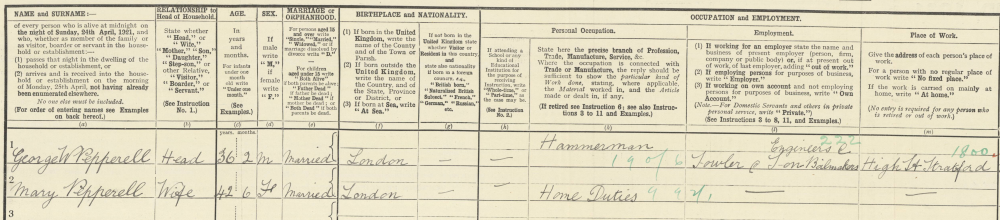 NAME and SURNAME:—
of every person who is alive at midnight on
the night of Sunday, 24th April, 1921, and
who, whether as member of the family or
as visitor, boarder or servant in the house-
hold or establishment:—
(1) passes that night in the dwelling of the
household or establishment, or
(2) arrives and is received into the house-
hold or establishment on the morning
of Monday, 25th April, not having already
been enumerated elsewhere.
No one else must be included.
(For order of entering names see Examples
on back hereof.)
(a)
RELATIONSHIP to
Head of Household.
State whether
"Head," or
"Wife,"
"Mother," "Son,"
"Daughter,"
"Step-son," or
other Relative,
"Visitor,"
"Boarder," or
"Servant."
(See Instruction
No. 1.)
(b)
AGE.
In
years
and
months.
For infants
under one
month write
"Under one
month."
(See
Examples.)
(c)
SEX.
If
male
write
"M,"
if
female
write
"F."
(d)
MARRIAGE or
ORPHANHOOD.
For persons aged 15
and over write
"Single," "Married,"
"Widowed," or if
marriage dissolved
by divorce write "D."
For children
aged under 15 write
"Both Alive"
if both parents be alive,
"Father Dead"
if father be dead;
"Mother Dead" if
mother be dead; or
"Both Dead" if both
parents be dead.
(e)
BIRTHPLACE and NATIONALITY.
(1) If born in the United
Kingdom, write the
name of the County
and of the Town or
Parish.
(2) If born outside
the United Kingdom,
write the name of
the Country, and of
the State, Province
or District, or
(3) If born at Sea, write
"At Sea."
(f)
If not born in the
United Kingdom
state whether
Visitor or
Resident in this country
and
state also nationality
if born in a foreign
country
(g)
OCCUPATION and EMPLOYMENT.
Personal Occupation.
If attending a
School or
any kind of
Educational
Institution for
the purpose of
receiving
instruction, write
(See
Instruction
No. 2.)
(h)
State here the precise branch of Profession,
Trade, Manufacture, Service, &c.
Where the occupation is connected with
Trade or Manufacture, the reply should be
sufficient to show the particular kind of
Work done, stating, where applicable,
the Material worked in, and the Article
made or dealt in, if any.
(If retired see Instruction 6; see also Instruc-
tions 3 to 11 and Examples.)
(k)
Employment.
(1) If working for an employer state the name and
business of present employer (person, firm,
company or public body) or, if at present out
of work, of last employer, adding "out of work."
(2) If employing persons for purposes of business,
write "Employer."
(3) If working on own account and not employing
persons for purposes of business, write "Own
Account."
(Note.—For Domestic Servants and others in private
personal service, write "Private.")
(See Instructions 3 to 8, 11, and Examples.)
(l)
Place of Work.
Give the address of each person's place of
work.
For a person with no regular place of
work write "No fixed place."
If the work is carried on mainly at
home, write "At home."
(No entry is required for any person who
is retired or out of work.)
(m)
years. months.
1 George W Pepperell Head 36 2 M Married London — — Hammerman 190/6 Engineers & 222 Fowler & Son Boilmakers High St Stratford 1800
2 Mary Pepperell Wife 42 6 F Married London — — Home Duties — —
3